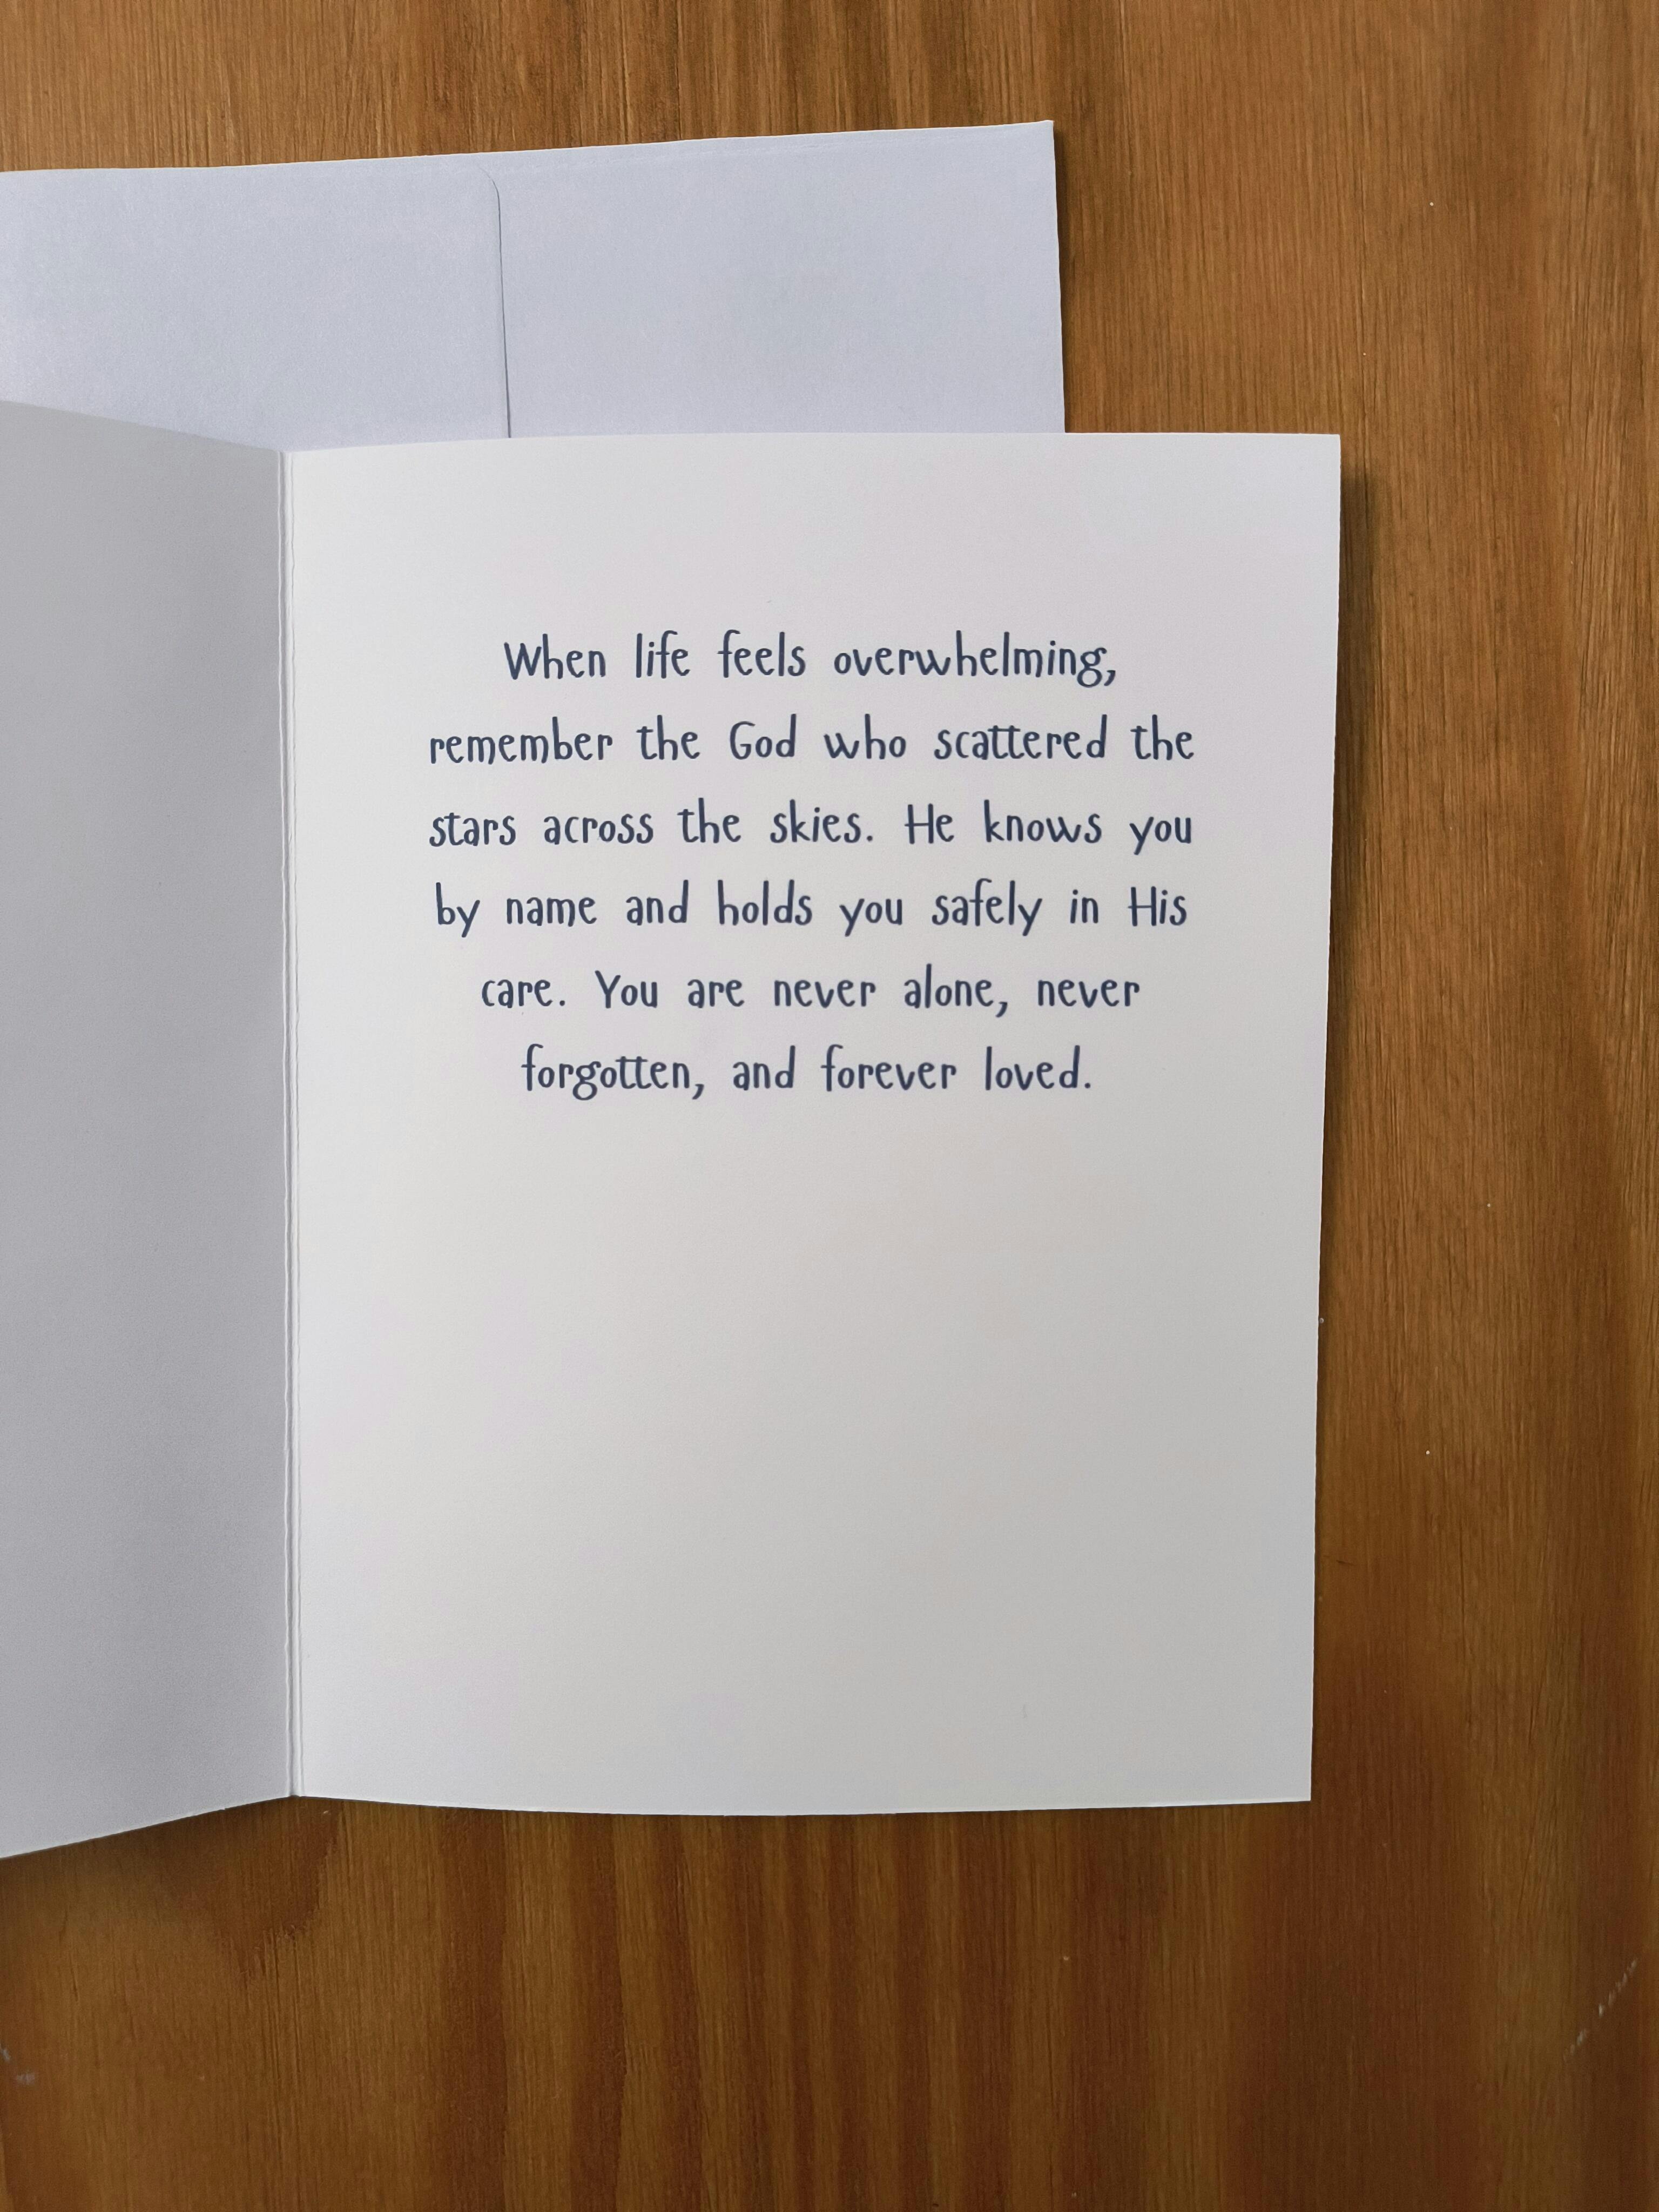 When life feels overwhelming,
remember the God who scattered the
stars across the skies. He knows you
by name and holds you safely in His
care. You are never alone, never
forgotten, and forever loved.